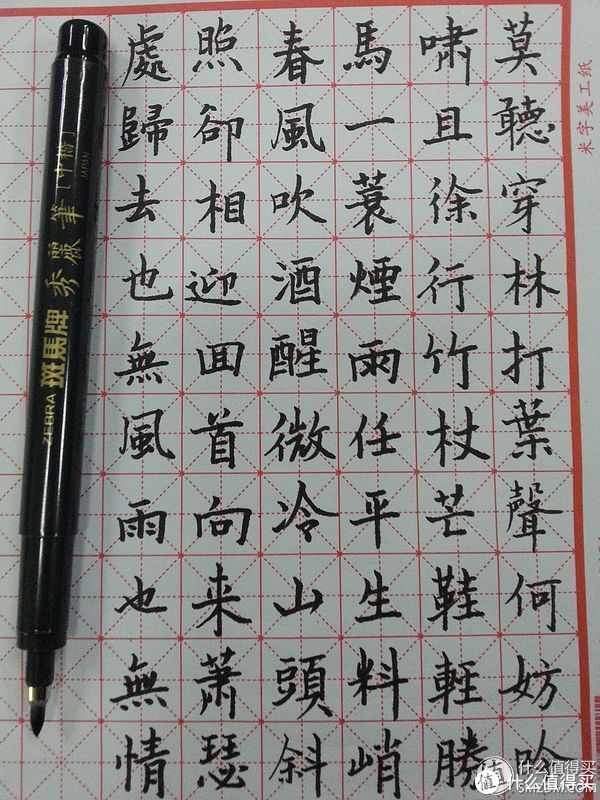 莫聽穿林打葉聲何妨吟
啸且徐行竹杖芒鞋輕勝
馬一蓑煙雨任平生料峭
春風吹酒醒微冷山頭斜
照卻相迎囬首向来蕭瑟
處歸去也無風雨也無情
ZEBRA 斑馬牌 秀麗筆 [中楷] JAPAN
米字美工纸
值 什么值得买
什么值得买